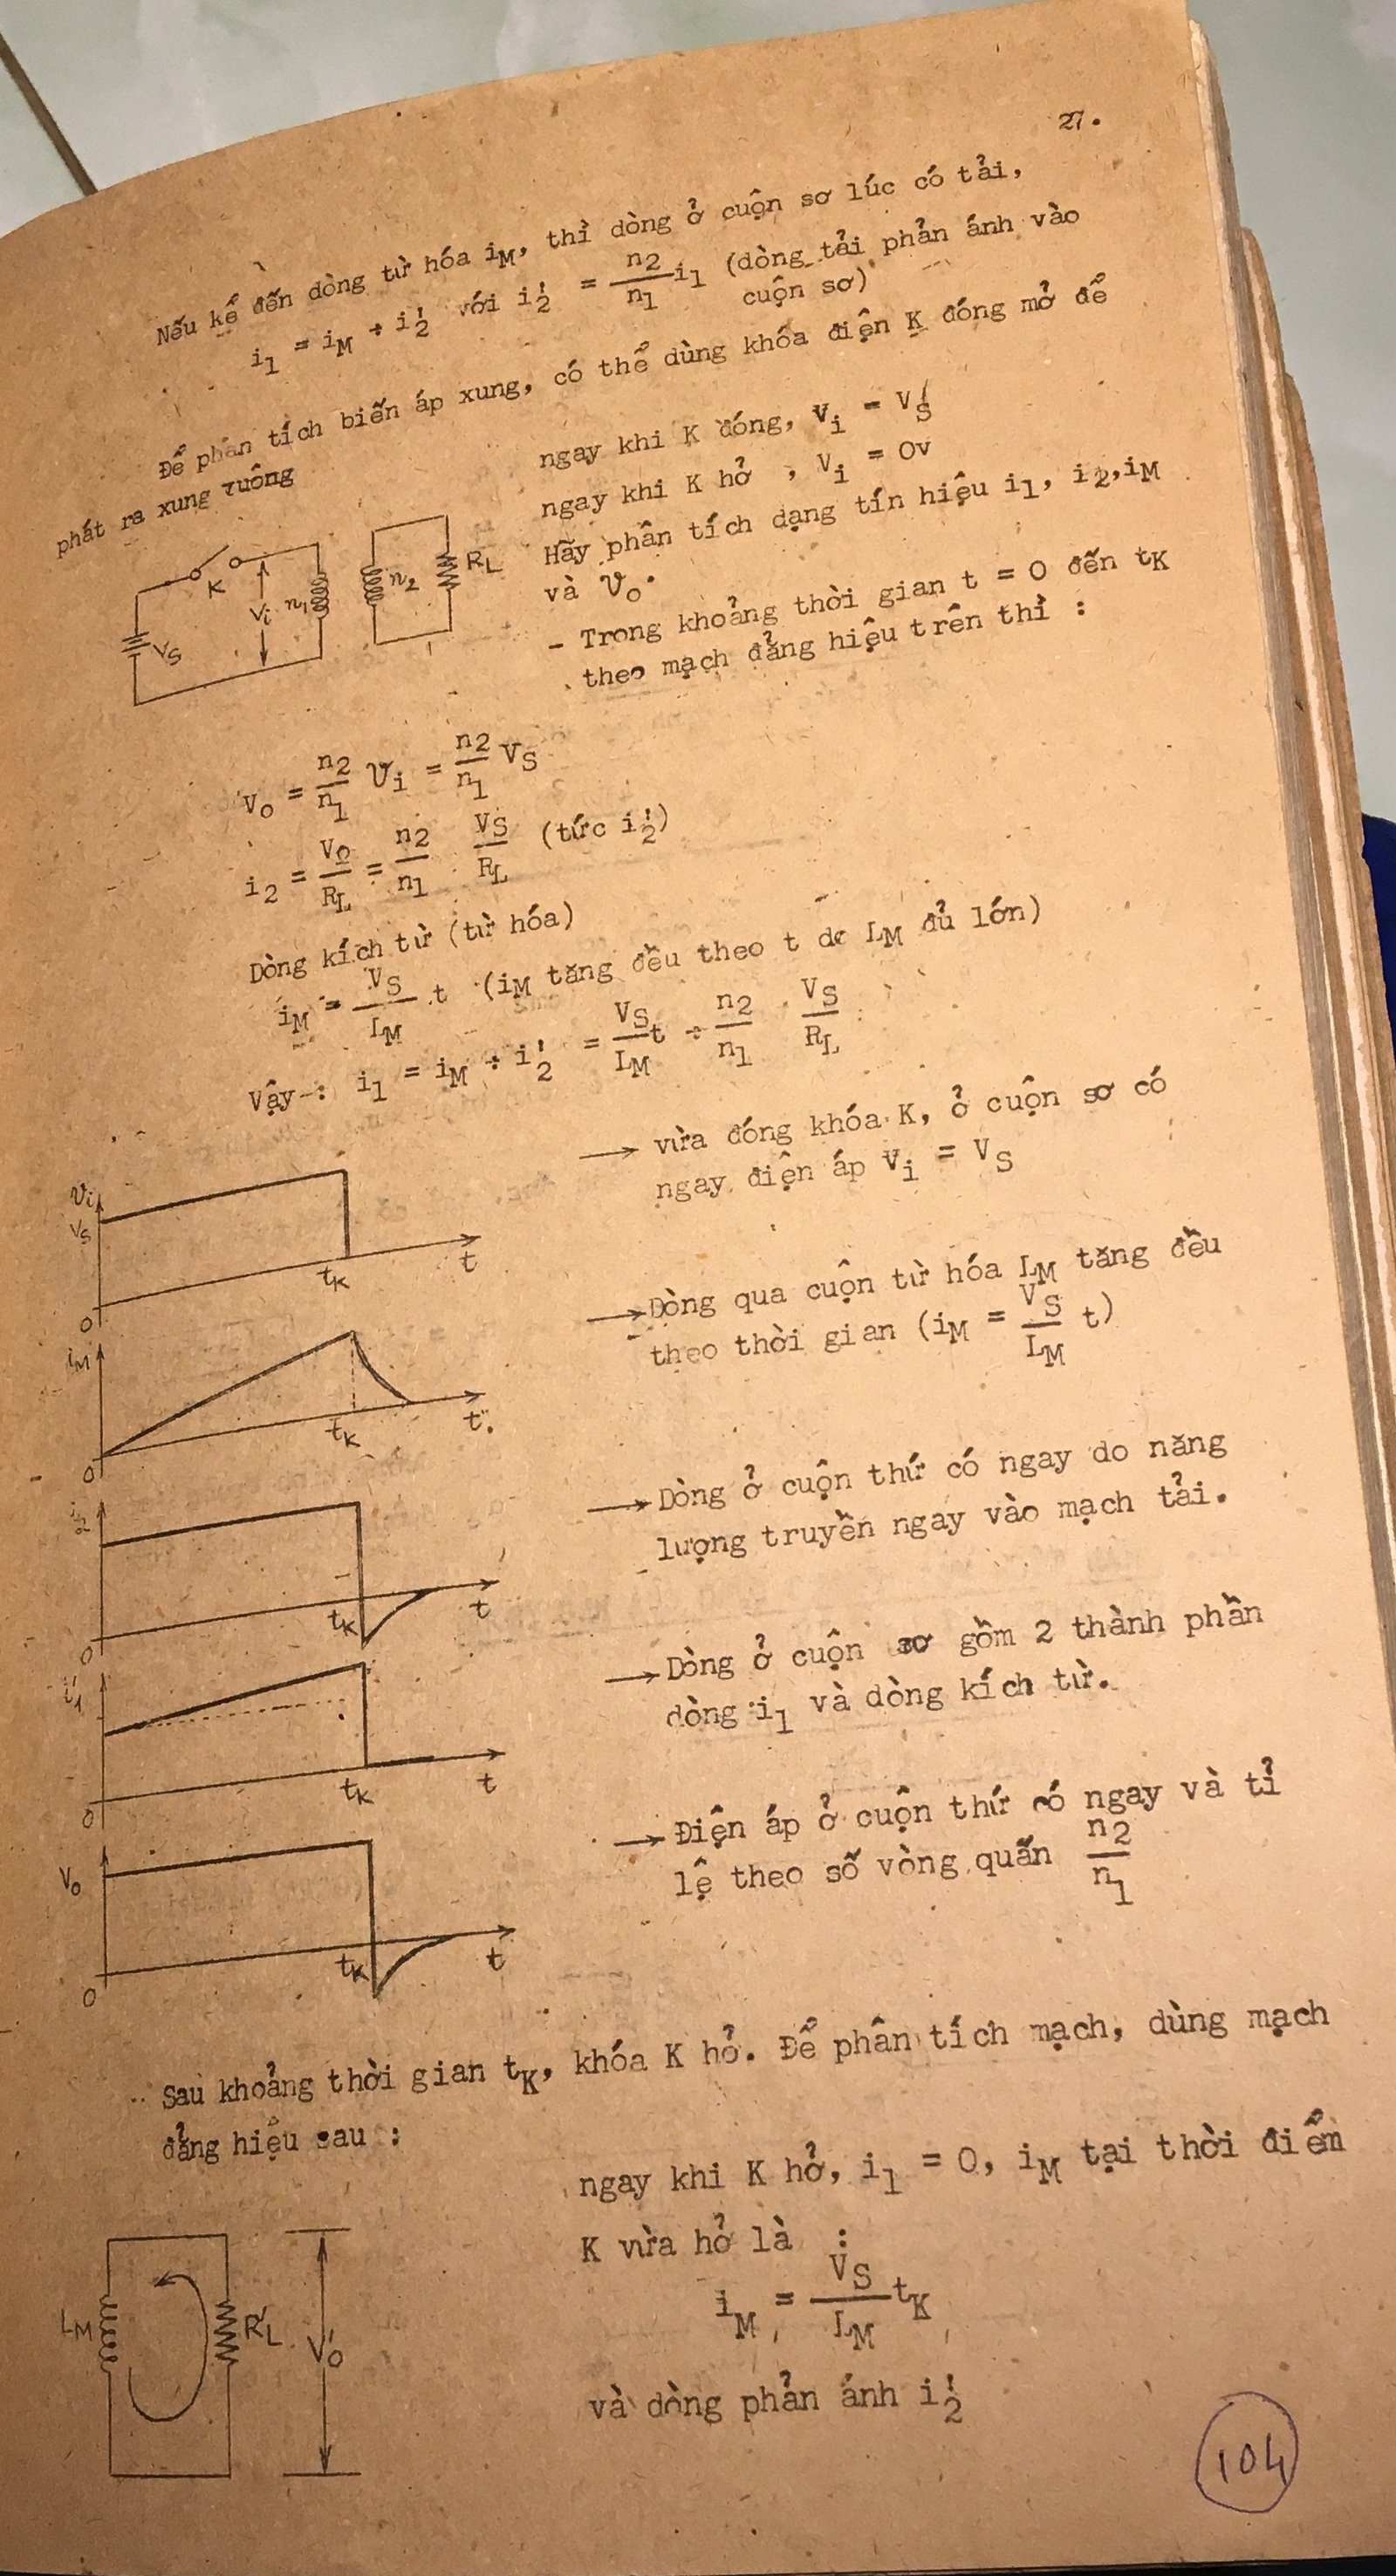 27.
Nếu kể đến dòng từ hóa iM, thì dòng ở cuộn sơ lúc có tải,
i1 = iM + i'2 với i'2 = n2/n1 i1 (dòng tải phản ánh vào
cuộn sơ)
Để phân tích biến áp xung, có thể dùng khóa điện K đóng mở để
phát ra xung vuông
ngay khi K đóng, Vi = VS
ngay khi K hở , Vi = 0v
Hãy phân tích dạng tín hiệu i1, i2, iM
và Vo.
- Trong khoảng thời gian t = 0 đến tK
theo mạch đẳng hiệu trên thì :
K
VS
Vi
n1
n2
RL
Vo = n2/n1 Vi = n2/n1 VS
i2 = Vo/RL = n2/n1 VS/RL (tức i'2)
Dòng kích từ (từ hóa)
iM = VS/LM t (iM tăng đều theo t do LM đủ lớn)
Vậy : i1 = iM + i'2 = VS/LM t + n2/n1 VS/RL
Vi
VS
0
tK
t
→ vừa đóng khóa K, ở cuộn sơ có
ngay điện áp Vi = VS
iM
0
tK
t
→ Dòng qua cuộn từ hóa LM tăng đều
theo thời gian (iM = VS/LM t)
i2
0
tK
t
→ Dòng ở cuộn thứ có ngay do năng
lượng truyền ngay vào mạch tải.
i1
0
tK
t
→ Dòng ở cuộn sơ gồm 2 thành phần
dòng i1 và dòng kích từ.
Vo
0
tK
t
→ Điện áp ở cuộn thứ có ngay và tỉ
lệ theo số vòng quấn n2/n1
Sau khoảng thời gian tK, khóa K hở. Để phân tích mạch, dùng mạch
đẳng hiệu sau :
ngay khi K hở, i1 = 0, iM tại thời điểm
K vừa hở là :
iM = VS/LM tK
và dòng phản ánh i'2
LM
R'L
V'o
104